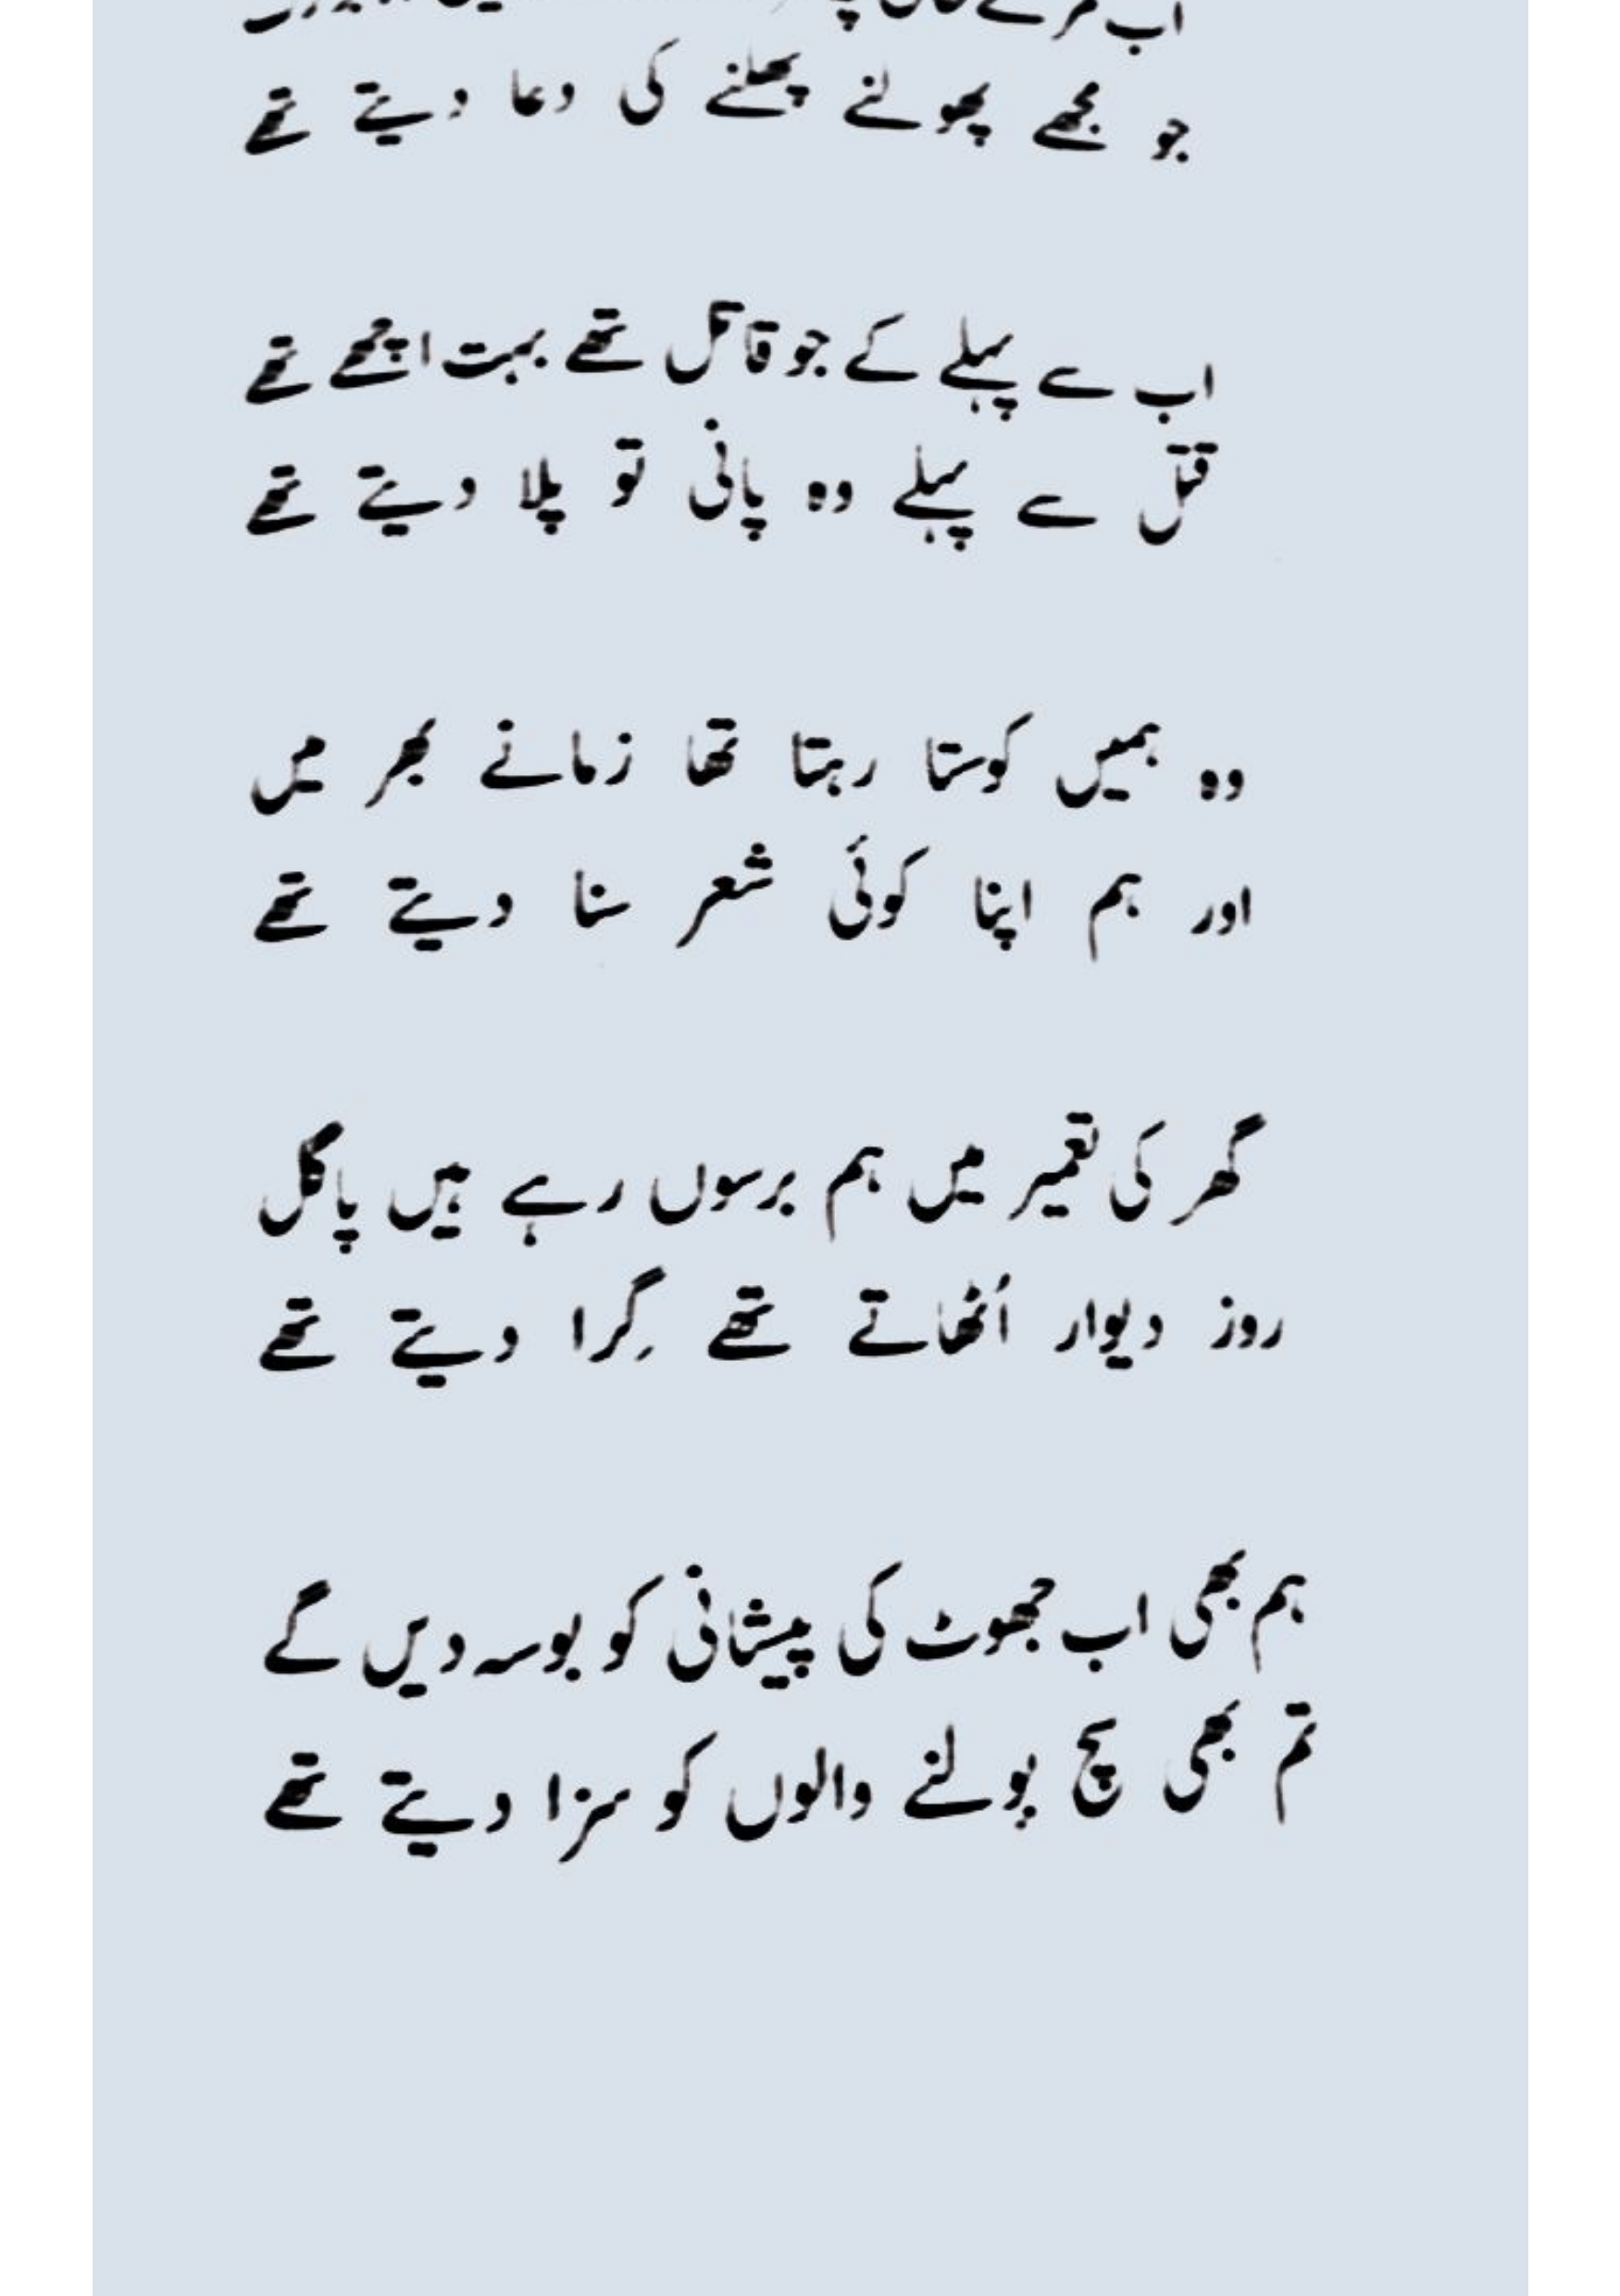 اب مرے
جو مجھے پھولنے پھلنے کی دعا دیتے تھے
اب سے پہلے کے جو قاتل تھے بہت اچھے تھے
قتل سے پہلے وہ پانی تو پلا دیتے تھے
وہ ہمیں کوستا رہتا تھا زمانے بھر میں
اور ہم اپنا کوئی شعر سنا دیتے تھے
گھر کی تعمیر میں ہم برسوں رہے ہیں پاگل
روز دیوار اُٹھاتے تھے گِرا دیتے تھے
ہم بھی اب جھوٹ کی پیشانی کو بوسہ دیں گے
تم بھی سچ بولنے والوں کو سزا دیتے تھے